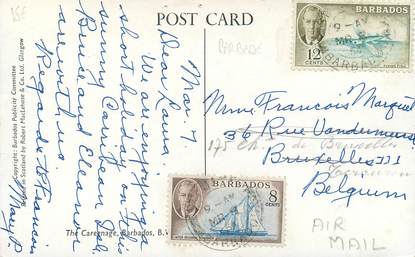 POST CARD
BARBADE
Mar. 7
Dear Laura,
We are enjoying a
short holiday on this
sunny Carib'n Isle.
Bruce and Eleanor
are with us
Regards to Francois
Mary P.
The Careenage, Barbados, B.W.
Copyright: Barbados Publicity Committee
in Scotland by Robert MacLehose & Co. Ltd. Glasgow
BARBADOS
12
CENTS
BARBADOS
8
CENTS
INTER-COLONIAL SCHOONER
Mme François Marquet
36 Rue Vandermeersch
175 Ch. de Bruxelles
Bruxelles III
Belgium
AIR
MAIL